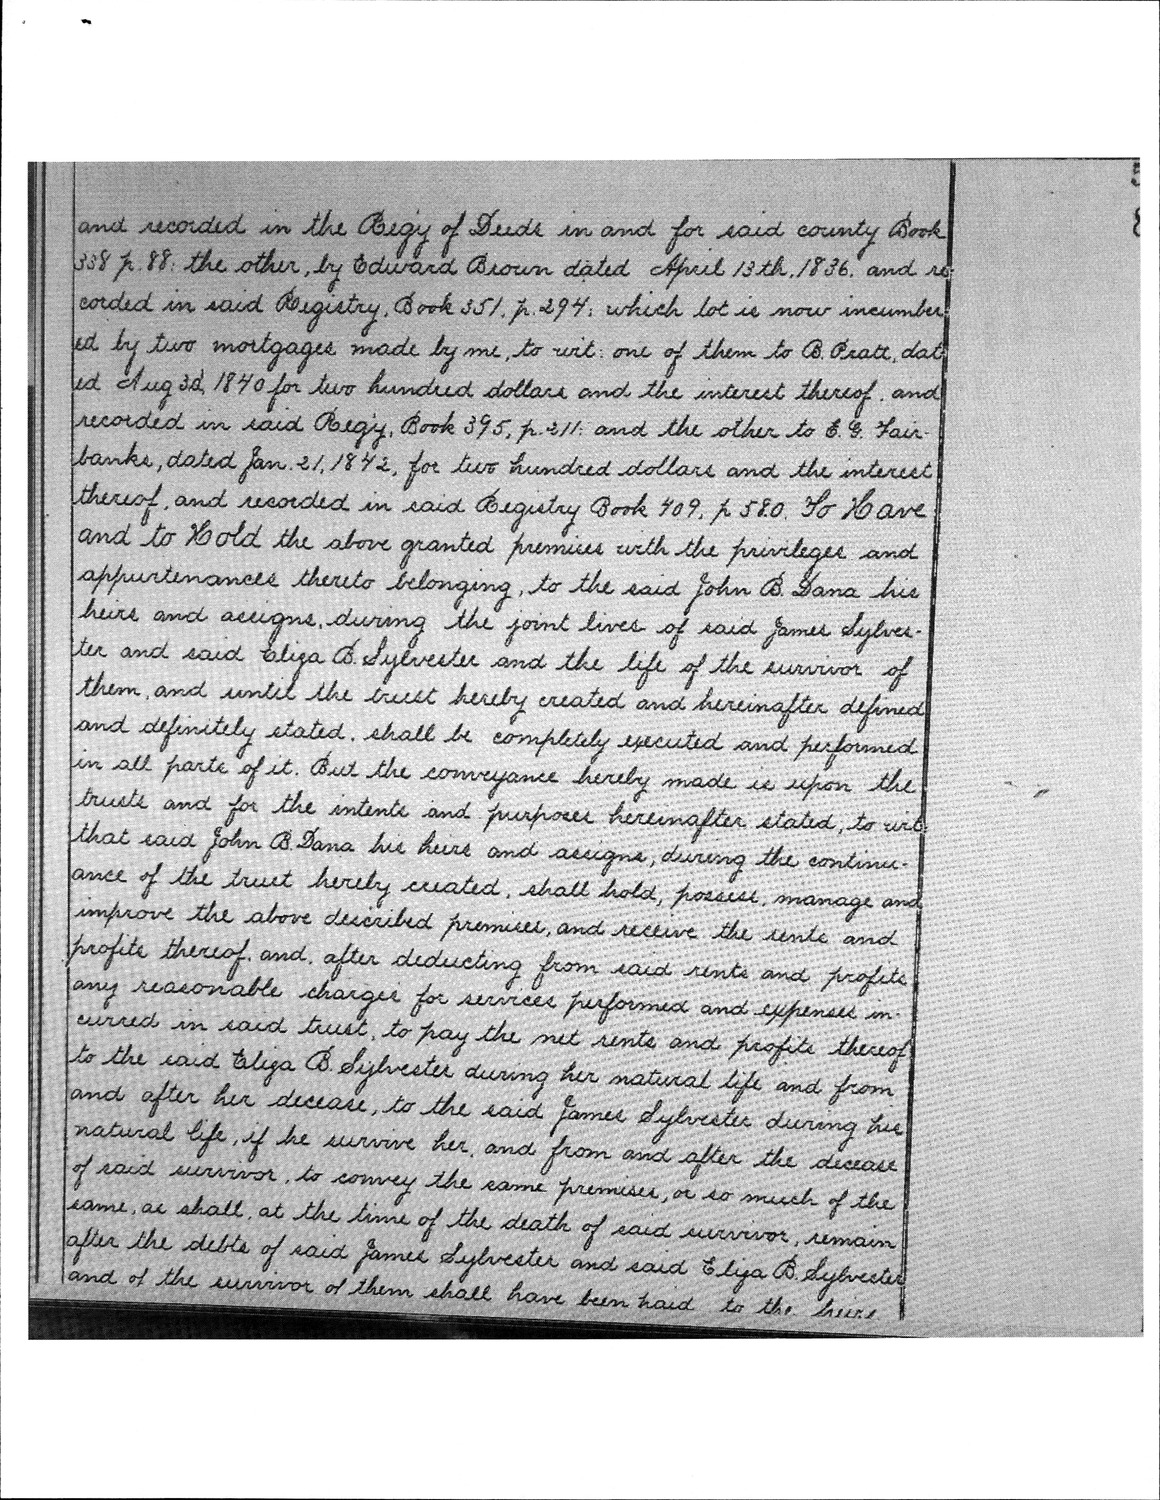 and recorded in the Regy of Deeds in and for said county Book
338 p. 88: the other, by Edward Brown dated April 13th, 1836. and re-
corded in said Registry, Book 351, p. 294: which lot is now incumber-
ed by two mortgages made by me, to wit: one of them to B. Pratt, dat-
ed Aug 3d, 1840 for two hundred dollars and the interest thereof, and
recorded in said Regy, Book 395, p. 211: and the other to E. G. Fair-
banks, dated Jan. 21, 1842, for two hundred dollars and the interest
thereof, and recorded in said Registry Book 409, p 580. To Have
and to Hold the above granted premises with the privileges and
appurtenances thereto belonging, to the said John B. Dana his
heirs and assigns, during the joint lives of said James Sylves-
ter and said Eliza B. Sylvester and the life of the survivor of
them, and until the trust hereby created and hereinafter defined
and definitely stated, shall be completely executed and performed
in all parts of it. But the conveyance hereby made is upon the
trusts and for the intents and purposes hereinafter stated, to wit:
that said John B. Dana his heirs and assigns, during the continu-
ance of the trust hereby created, shall hold, possess, manage and
improve the above described premises, and receive the rents and
profits thereof, and, after deducting from said rents and profits
any reasonable charges for services performed and expenses in-
curred in said trust, to pay the net rents and profits thereof
to the said Eliza B. Sylvester during her natural life and from
and after her decease, to the said James Sylvester during his
natural life, if he survive her, and from and after the decease
of said survivor, to convey the same premises, or so much of the
same, as shall, at the time of the death of said survivor, remain
after the debts of said James Sylvester and said Eliza B. Sylvester
and of the survivor of them shall have been paid to the heirs